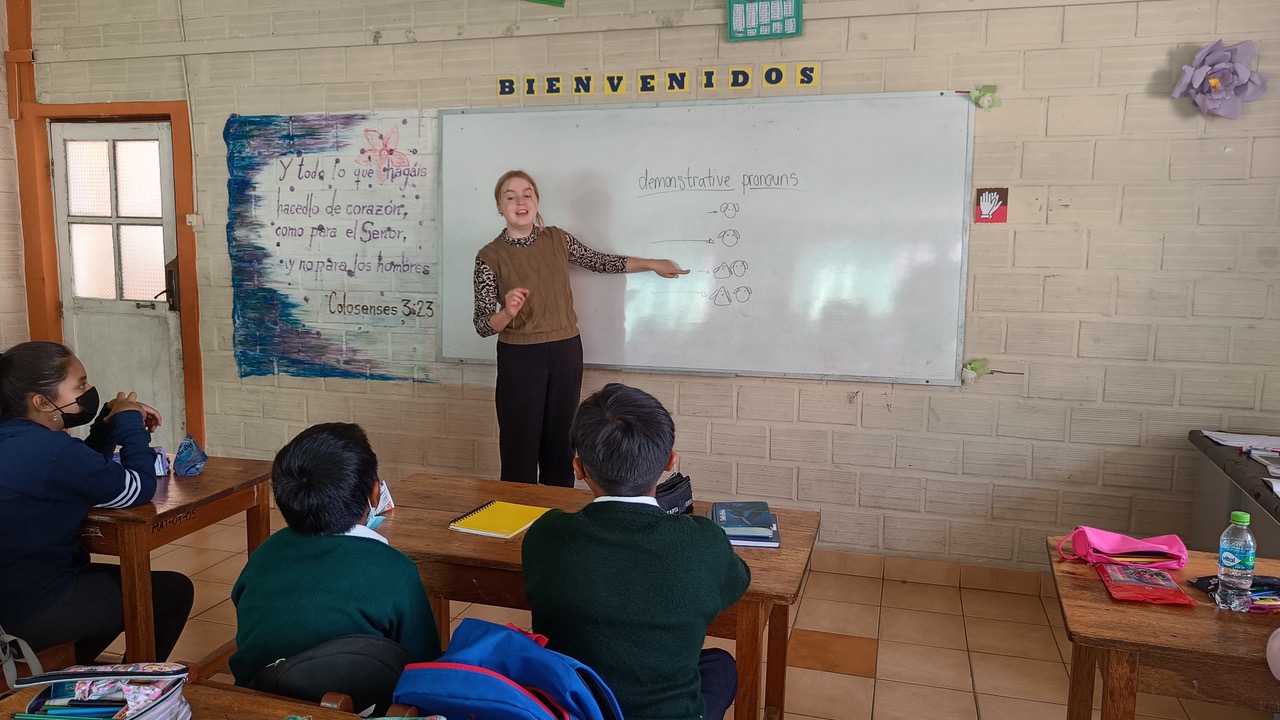 BIENVENIDOS
Y todo lo que hagáis
hacedlo de corazón,
como para el Señor,
y no para los hombres
Colosenses 3:23
demonstrative pronouns
MAT-01-05